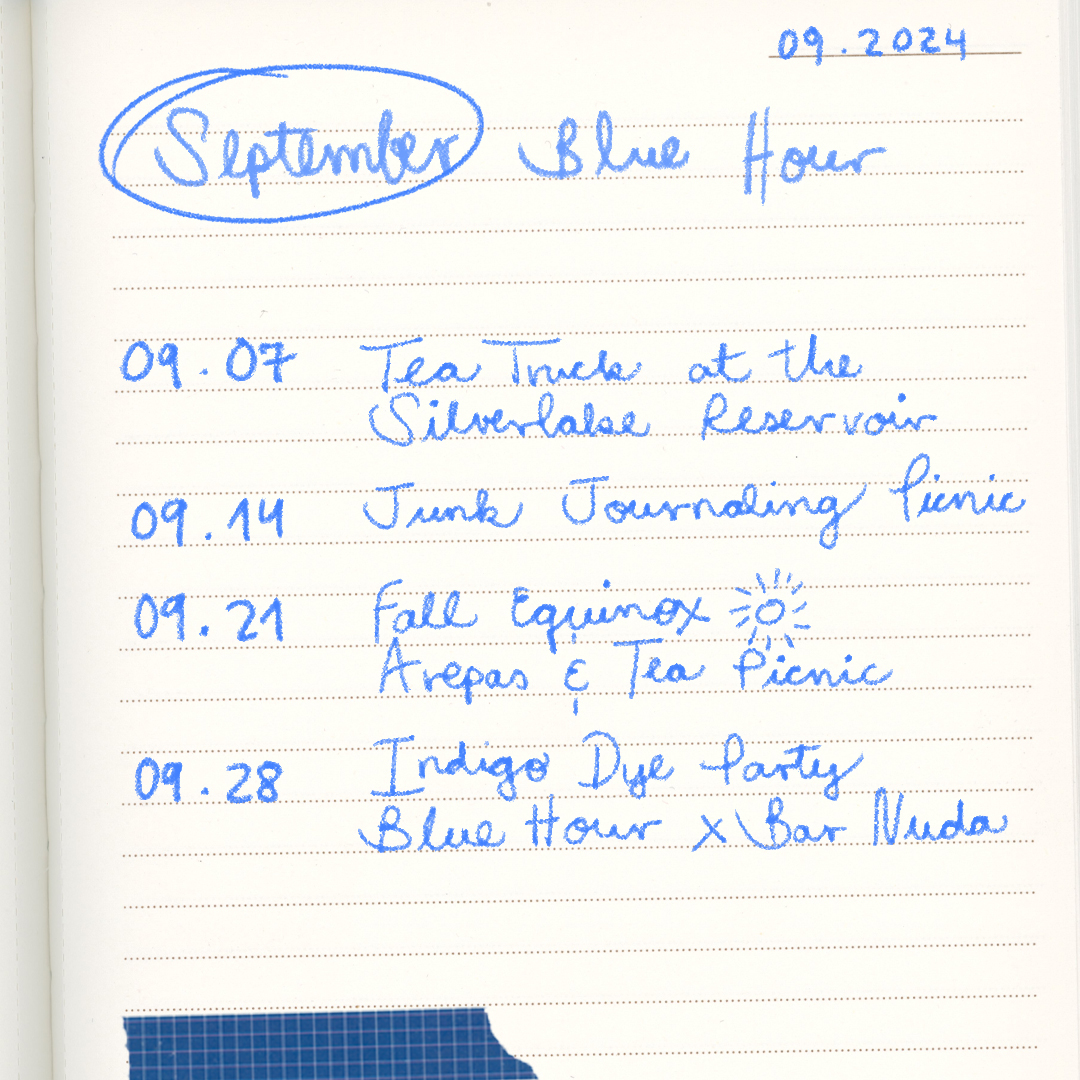 09.2024
September Blue Hour
09.07 Tea Truck at the
Silverlake Reservoir
09.14 Junk Journaling Picnic
09.21 Fall Equinox
Arepas & Tea Picnic
09.28 Indigo Dye Party
Blue Hour x Bar Nuda